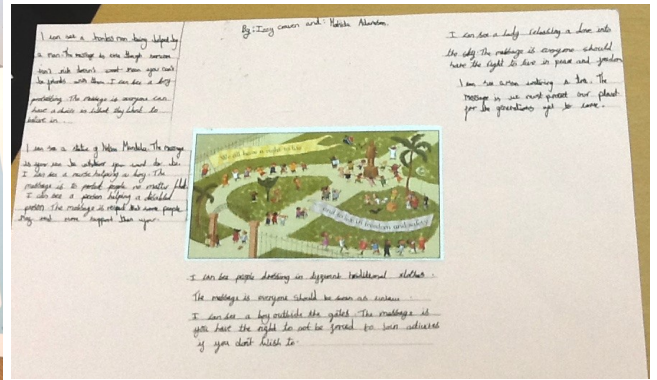 By: Izzy and:
I can see a homeless man being helped by
a man. The message is even though someone
you can't
be friends with them. I can see a boy
protesting. The message is everyone can
have a choice in what they want to
believe in.
I can see a statue of Nelson Mandela. The message
is you can be whatever you want to be.
I can see a nurse helping a boy. The
message is to protect people no matter what.
I can see a person helping a disabled
person. The message is respect that some people
may need more support than you.
I can see a lady releasing a dove into
the sky. The message is everyone should
have the right to live in peace and freedom.
I can see a man watering a tree. The
message is we must protect our planet
for the generations yet to come.
We all have a right to live
and to live in freedom and safety.
I can see people dressing in different traditional clothes.
The message is everyone should be seen as
I can see a boy outside the gates. The message is
you have the right to not be forced to join activites
if you don't wish to.